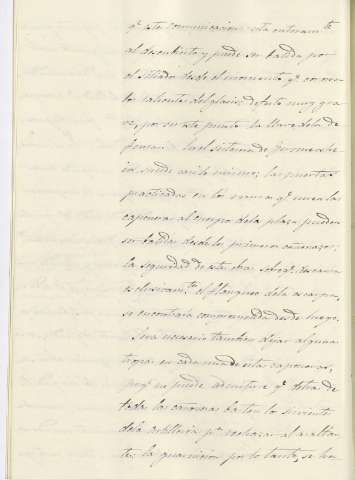 qe esta comunicacion esta enteramte
al descubierto y puede ser batida por
el sitiador desde el momento qe corone
los salientes del glacis: defecto muy gra
ve, por ser este punto la llave de la de
fensa. En el sistema de
sucede casi lo mismo; las puertas
practicadas en los muros qe unen las
caponeras al cuerpo de la plaza pueden
ser batidas desde los primeros cañonazos;
la seguridad de esta obra sobre qe descansa
esclusivamte el flanqueo de la escarpa,
se encontraria comprometida desde luego.
Sera necesario tambien dejar alguna
tropa en cada una de estas caponeras,
porqe no puede admitirse qe detras de
toda las cañoneras basten los sirvientes
de la artilleria pa rechazar el asaltan
te: la guarnicion por lo tanto, se ha